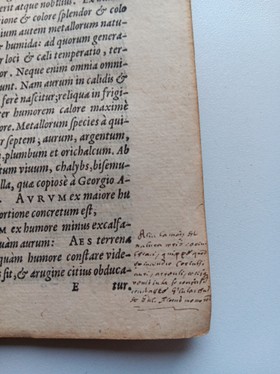 erit atque nobilius. Ex
one & colore splendor & colo
ium autem metallorum natu-
& humida: ad quorum genera-
r loci & cæli temperatio, ter-
or. Neque enim omnia omni-
unt. Nam aurum in calidis &
ferè nascitur; reliqua in frigi-
er humorem calore maximè
re. Metallorum species à qui-
r septem; aurum, argentum,
,plumbum et orichalcum. Ab
tum viuum, chalybs, bisemu-
lla, quæ copiosè à Georgio A-
. AVRVM ex maiore hu
ortione concretum est,
M ex humore minus excalfa-
quàm aurum: AES terrena
quàm humore constare vide-
s fit, & ærugine citius obduca-
E sur.